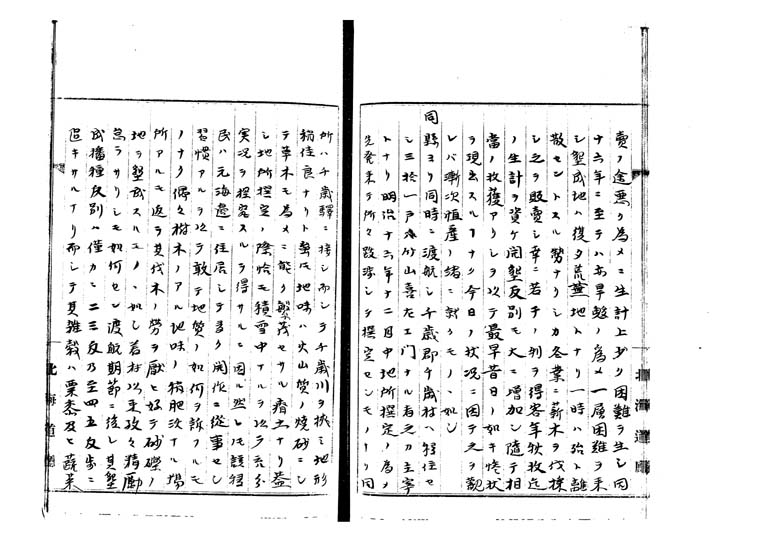 賣ノ途悪ク為メニ生計上少ク困難ヲ生シ同
十六年ニ至テハ旱魃ノ為メ一層困難ヲ来
シ墾成地ハ復タ荒蕪地トナリ一時ハ殆ト離
散セントスル勢ナリシカ各業ニ薪木ヲ伐採
シ之ヲ販賣シ幸ニ若干ノ利ヲ得客年秋收迄
ノ生計ヲ資ケ開墾反別モ大ニ増加シ隨テ相
當ノ收獲アリシヲ以テ最早昔日ノ如キ惨状
ヲ現出スル ナク今日ノ状况ニ因テ之ヲ觀
レバ漸次恒産ノ緒ニ就クモノヽ如シ
同縣ヨリ同時ニ渡航シ千歳郡千歳村ヘ移住セ
シ三拾一戸ハ 山喜左エ門ナル者之カ主宰
トナリ明治十六年十二月中地所撰定ノ為メ
先発来テ所々跋渉シテ撰定セシモノヨリ同
所ハ千歳驛ニ接シ而シテ千歳川ヲ挟ミ地形
稍佳良ナリト雖 地味ハ火山質ノ焼砂ニシ
テ草木モ為メニ能ク繁茂セサル瘠土ナリ蓋
シ地所撰定ノ際恰モ積雪中ナルヲ以テ充分
実况ヲ探究スルヲ得サルニ因ル然レトモ該移
民ハ元海邉ニ住居シテ多ク開作ニ從事セシ
習慣アルヲ以テ敢テ地質ノ如何ヲ訴フルモ
ノナク偶々樹木ノアル地味ノ稍肥沃ナル場
所アルモ返テ其伐木ノ勞ヲ厭ヒ好テ砂礫ノ
地ヲ墾成スルモノヽ如シ着村以来孜々精勵
怠ラサリシモ如何セン渡航期節ニ後レ其墾
成播種反別ハ僅カニ二三反乃至四五反歩ニ
過キサルナリ而シテ其雜穀ハ粟黍及ヒ蔬菜
北海道廳
北海道廳